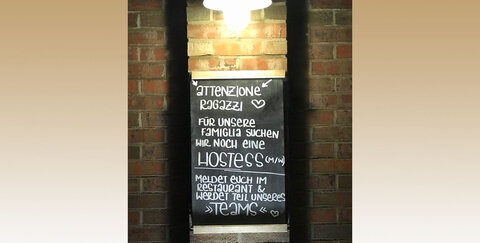 ATTENZIONE
RAGAZZI ♡
FÜR UNSERE
FAMIGLIA SUCHEN
WIR NOCH EINE
HOSTESS (M/W)
MELDET EUCH IM
RESTAURANT &
WERDET TEIL UNSERES
»TEAMS«